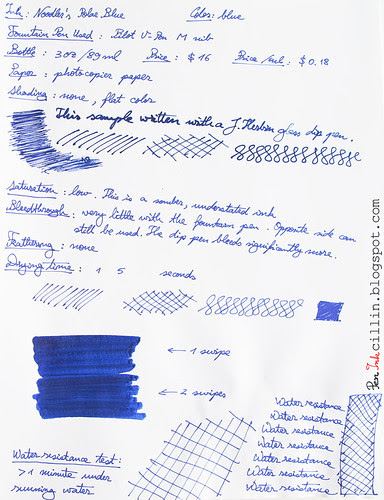 Ink: Noodler's Polar Blue Color: blue
Fountain Pen Used: Ellot V-Pen M nib
Bottle: 3 oz / 89 ml Price: $ 16 Price /ml: $ 0.18
Paper: photocopier paper
Shading: none, flat color
This sample written with a J. Herbin glass dip pen.
Saturation: low. This is a somber, understated ink
Bleedthrough: very little with the fountain pen. Opposite side can
still be used. The dip pen bleeds significantly more.
Feathering: none
Drying time: 1 5 seconds
← 1 swipe
← 2 swipes
Water resistance
Water resistance
Water resistance
Water resistance
Water resistance
Water resistance
Water resistance
Water resistance test:
> 1 minute under
running water
Pen Ink cillin.blogspot.com